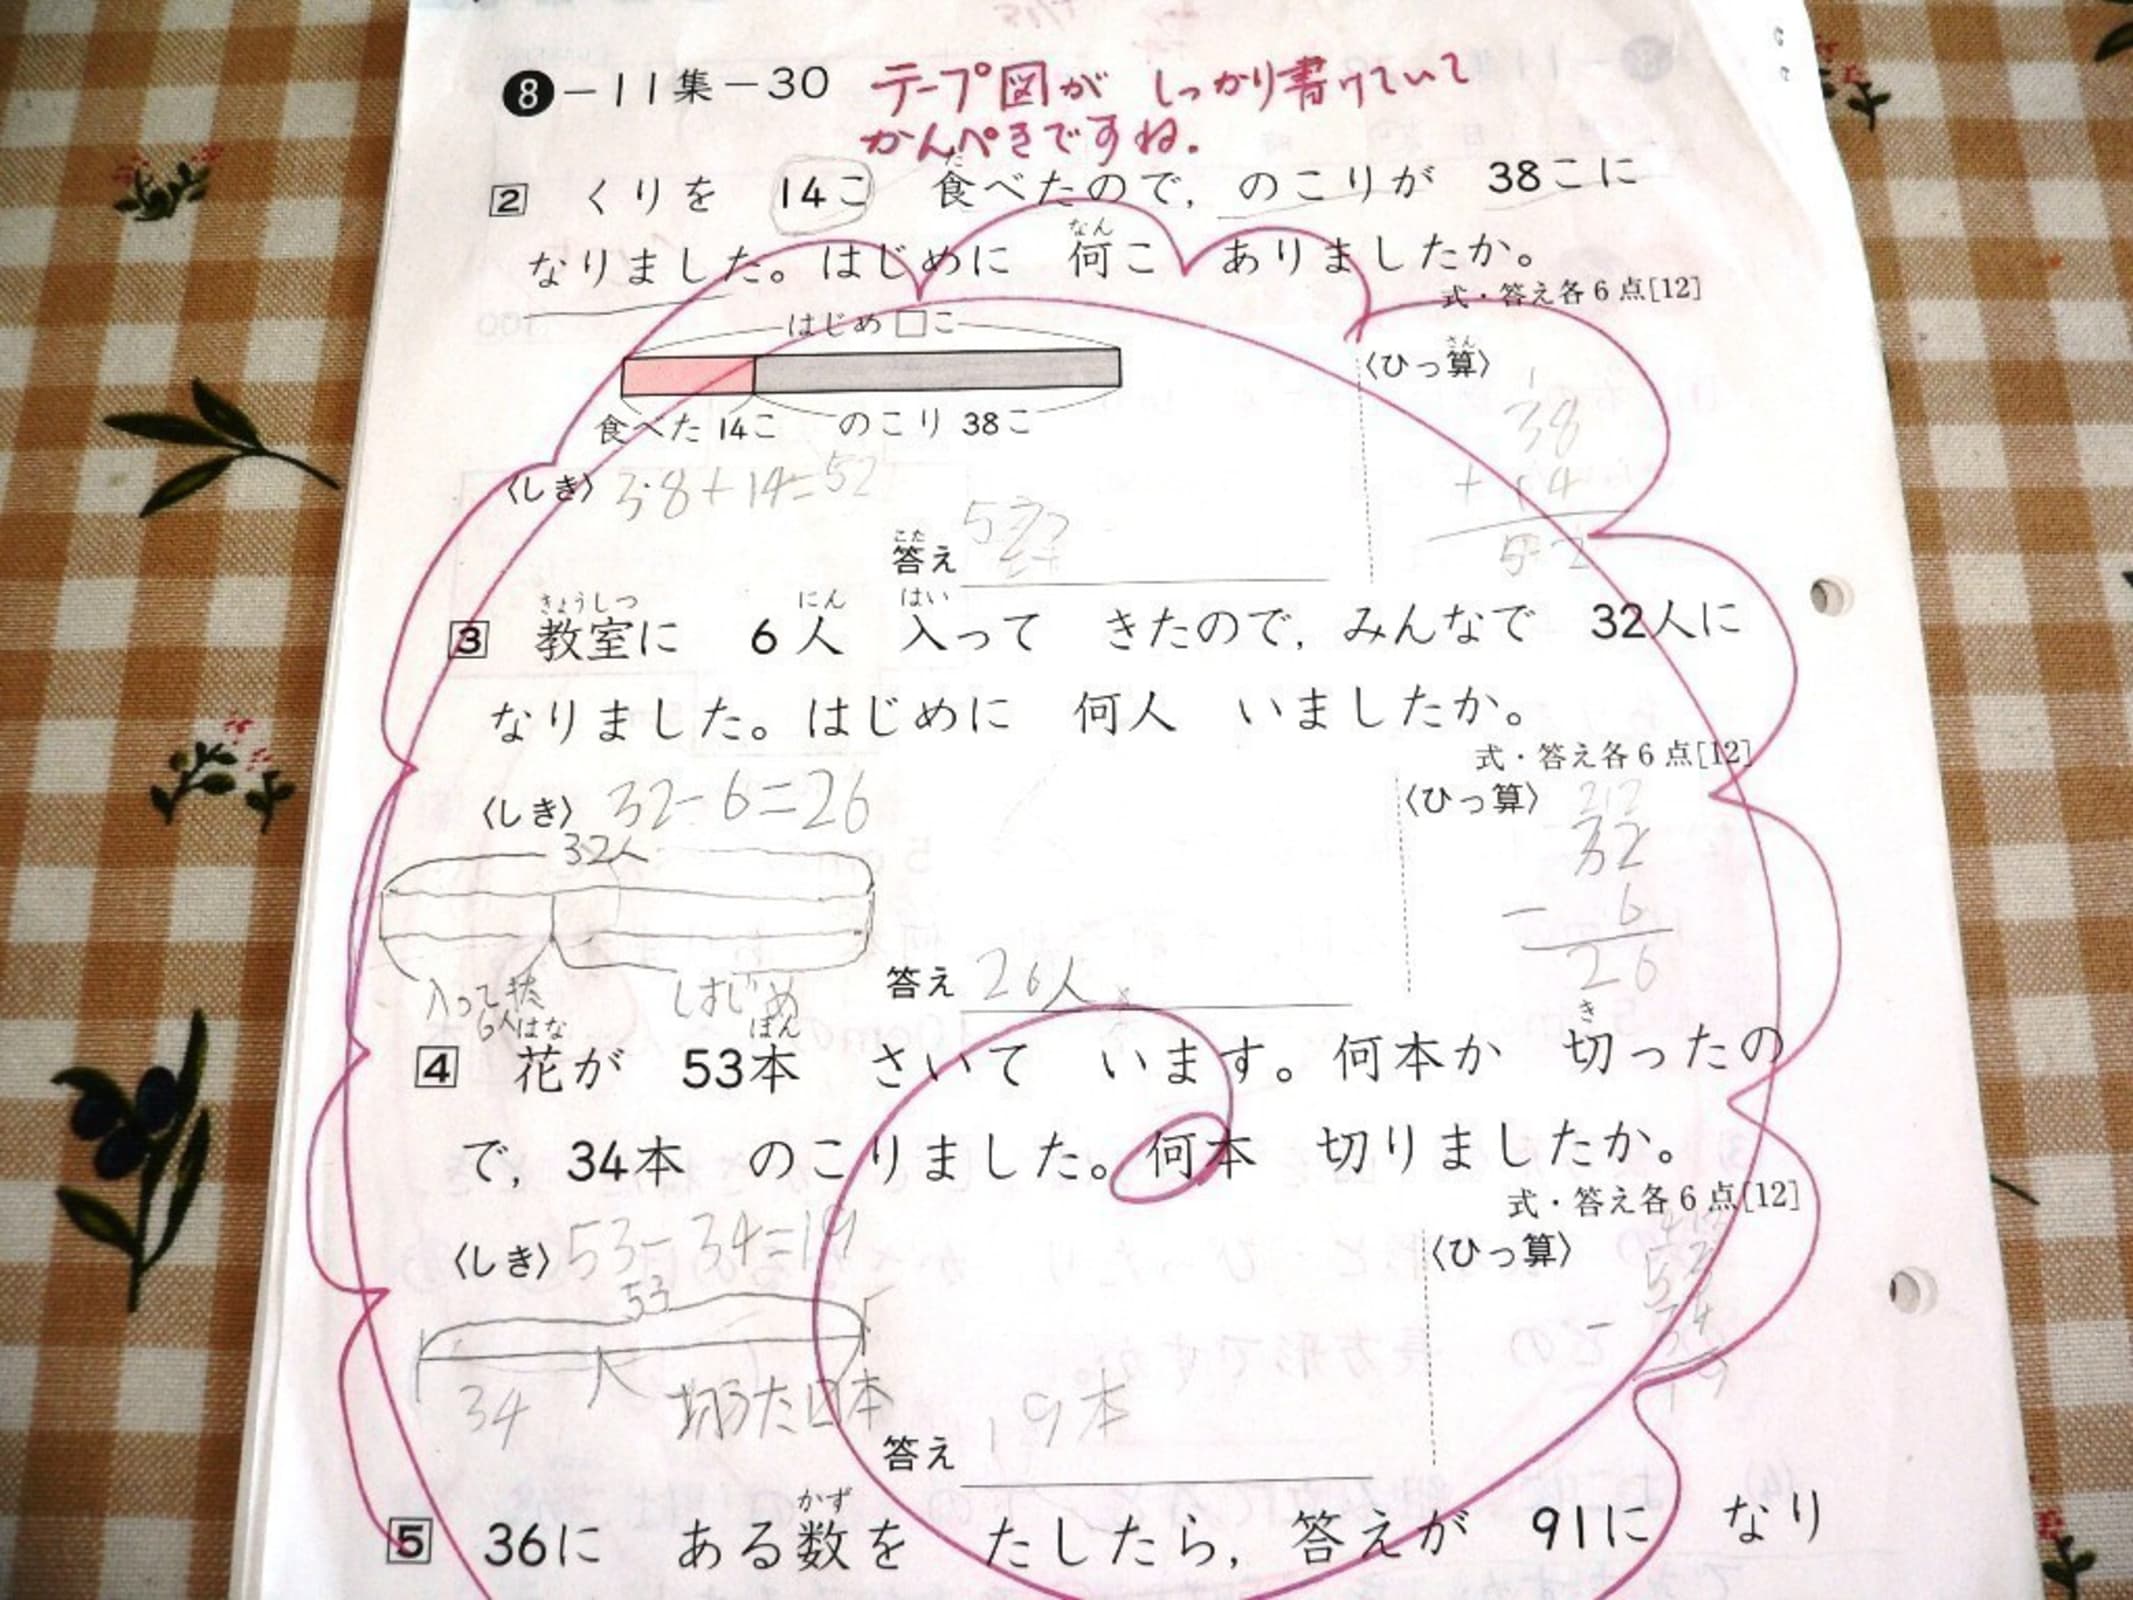 ❽－11集－30 テープ図が しっかり書けていて
かんぺきですね.
2 くりを 14こ 食べたので, のこりが 38こに
た
なりました。はじめに 何こ ありましたか。
なん
式・答え各6点[12]
はじめ□こ
食べた 14こ のこり 38こ
〈ひっ算〉
さん
1
38
+14
52
〈しき〉 38+14=52
答え
こた
3 教室に 6人 入って きたので, みんなで 32人に
きょうしつ にん はい
なりました。はじめに 何人 いましたか。
式・答え各6点[12]
〈しき〉 32-6=26
〈ひっ算〉
212
32
- 6
26
32人
入って来た はじめ
6人
答え 26人
4 花が 53本 さいて います。何本か 切ったの
はな ぽん き
で, 34本 のこりました。何本 切りましたか。
式・答え各6点[12]
〈しき〉 53-34=19
〈ひっ算〉
53
-34
19
53
34 切った 本
答え 19本
5 36に ある数を たしたら, 答えが 91に なり
かず